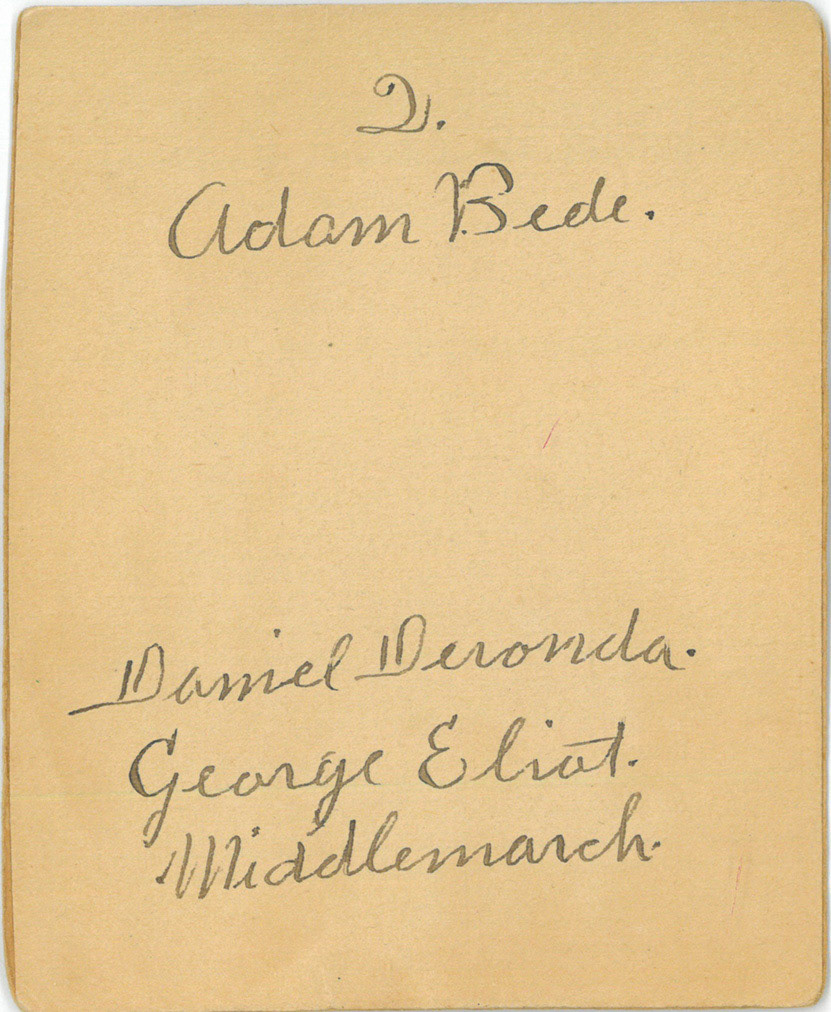 2.
Adam Bede.
Daniel Deronda.
George Eliot.
Middlemarch.